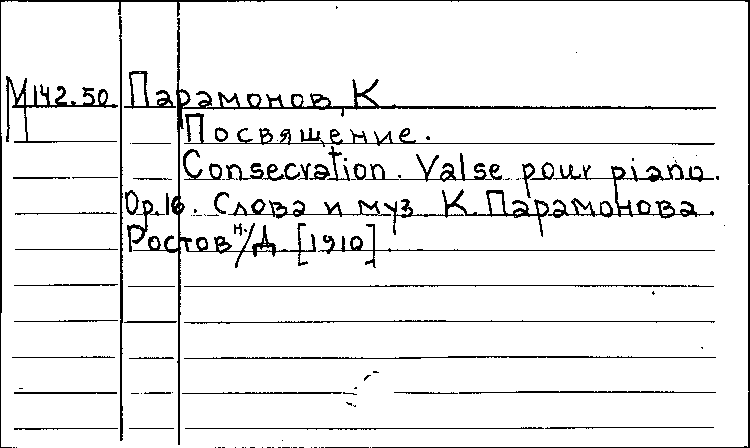 М142.50 Парамонов, К.
Посвящение.
Consecration. Valse pour piano.
Op.16. Слова и муз. К. Парамонова.
Ростов н./Д. [1910].